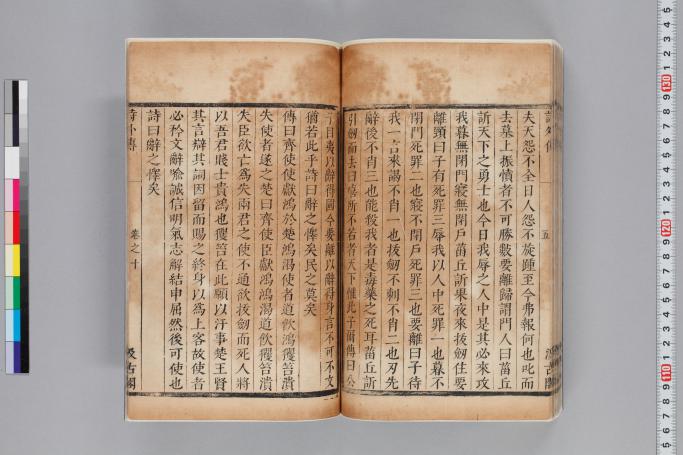 詩外傳
五
汲古閣
夫天怨不全日人怨不旋踵至今弗報何也叱而
去墓上振憤者不可勝數要離歸謂門人曰菑丘
訢天下之勇士也今日我辱之人中是其必來攻
我暮無閉門寢無閉戶菑丘訢果夜來拔劒住要
離頸曰子有死罪三辱我以人中死罪一也暮不
閉門死罪二也寢不閉戶死罪三也要離曰子待
我一言來謁不肖一也拔劒不刺不肖二也刃先
辭後不肖三也能殺我者是毒藥之死耳菑丘訢
引劒而去曰嘻所不若者天下惟此子爾傳曰公
子目夷以辭得國今要離以辭得身言不可不文
猶若此乎詩曰辭之懌矣民之莫矣
傳曰齊使使獻鴻於楚鴻渴使者道飲鴻玃筥潰
失使者遂之楚曰齊使臣獻鴻鴻渴道飲玃筥潰
失臣欲亡為失兩君之使不通欲拔劒而死人將
以吾君賤士貴鴻也玃筥在此願以汙事楚王賢
其言辯其詞因留而賜之終身以為上客故使者
必矜文辭喻誠信明氣志解結申屈然後可使也
詩曰辭之懌矣
詩外傳
卷之十
汲古閣